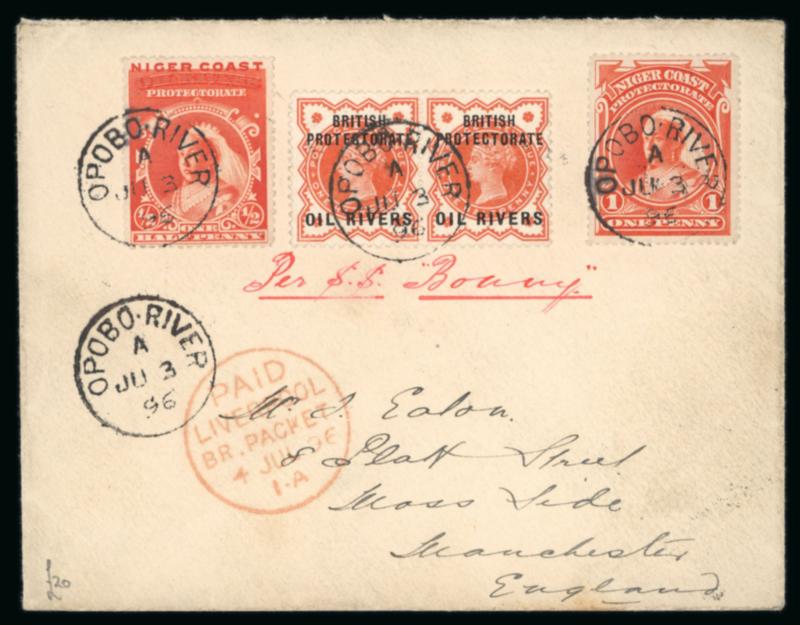 NIGER COAST
PROTECTORATE
½ ½
ONE
HALF PENNY
OPOBO·RIVER
A
JU 3
96
BRITISH
PROTECTORATE
OIL RIVERS
BRITISH
PROTECTORATE
OIL RIVERS
OPOBO·RIVER
A
JU 3
96
NIGER COAST
PROTECTORATE
1 1
ONE PENNY
OPOBO·RIVER
A
JU 3
96
Per S.S. "Bonny."
OPOBO·RIVER
A
JU 3
96
PAID
LIVERPOOL
BR. PACKET
4 JUL 96
1·A
Mr. J. Eaton.
8 Platt Street
Moss Side
Manchester
England